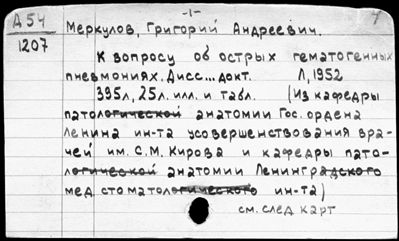 -1-
А 54
1207
Меркулов, Григорий Андреевич.
К вопросу об острых гематогенных
пневмониях. Дисс... докт. Л, 1952
395л, 25л. илл. и табл. (Из кафедры
патологической анатомии Гос. ордена
Ленина ин-та усовершенствования вра-
чей им. С.М. Кирова и кафедры пато-
логической анатомии Ленинградского
мед стоматологического ин-та)
см. след карт